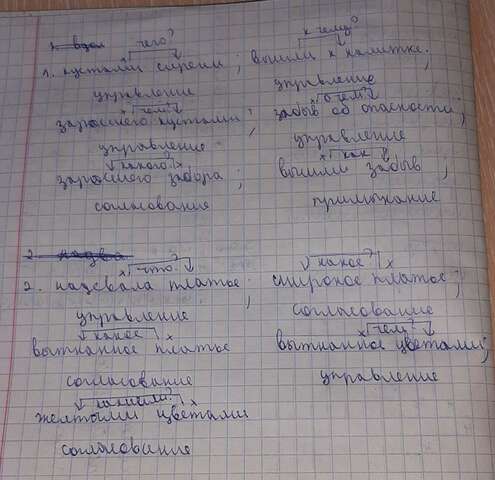 чего? к чему?
1. кустами сирени; вышли к калитке;
управление управление
чем? о чём?
заросшего кустами; забыв об опасности;
управление управление
какого? как
заросшего забора; вышли забыв;
согласование примыкание
2. надева
что? какое?
2. надевала платье; широкое платье;
управление согласование
какое чем?
вытканное платье вытканное цветами;
согласование управление
какими?
желтыми цветами
согласование